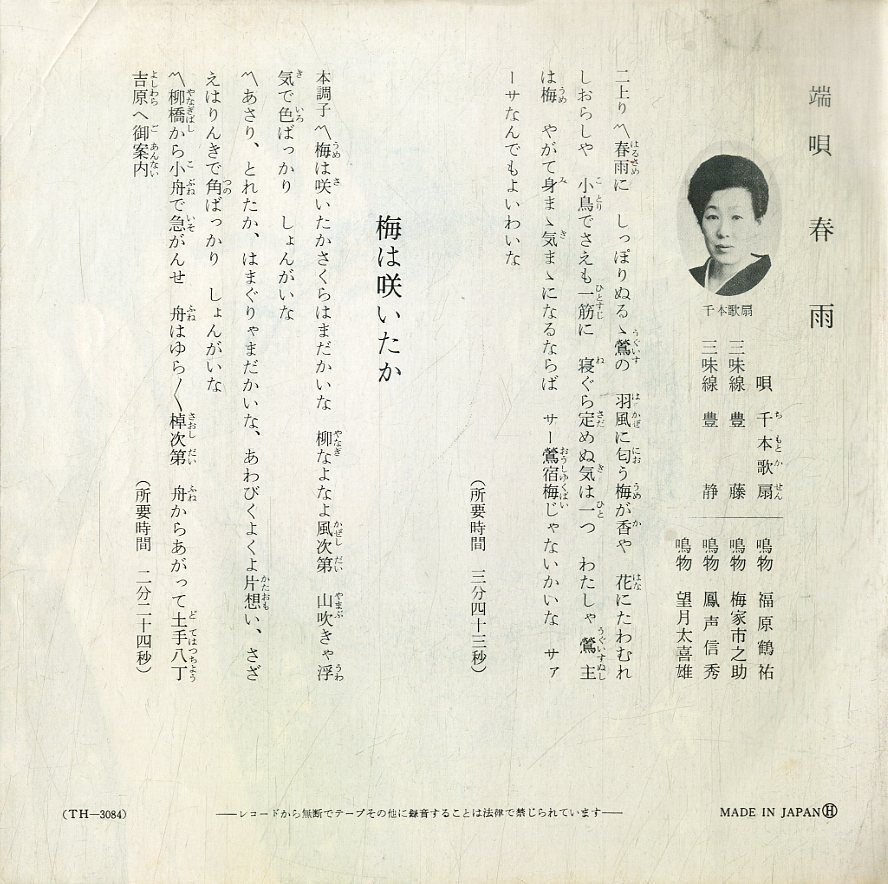 端唄 春雨
千本歌扇
唄 千本歌扇
三味線 豊藤
三味線 豊静
鳴物 福原鶴祐
鳴物 梅家市之助
鳴物 鳳声信秀
鳴物 望月太喜雄
二上り 〽春雨に しっぽりぬるゝ鶯の 羽風に匂う梅が香や 花にたわむれ
しおらしや 小鳥でさえも一筋に 寝ぐら定めぬ気は一つ わたしゃ鶯 主
は梅 やがて身まゝ気まゝになるならば サー鶯宿梅じゃないかいな サァ
ーサなんでもよいわいな
(所要時間 三分四十三秒)
梅は咲いたか
本調子 〽梅は咲いたかさくらはまだかいな 柳なよなよ風次第 山吹きゃ浮
気で色ばっかり しょんがいな
〽あさり、とれたか、はまぐりゃまだかいな、あわびくよくよ片想い、さざ
えはりんきで角ばっかり しょんがいな
〽柳橋から小舟で急がんせ 舟はゆら〳〵棹次第 舟からあがって土手八丁
吉原へ御案内
(所要時間 二分二十四秒)
(TH—3084)
——レコードから無断でテープその他に録音することは法律で禁じられています——
MADE IN JAPAN Ⓗ